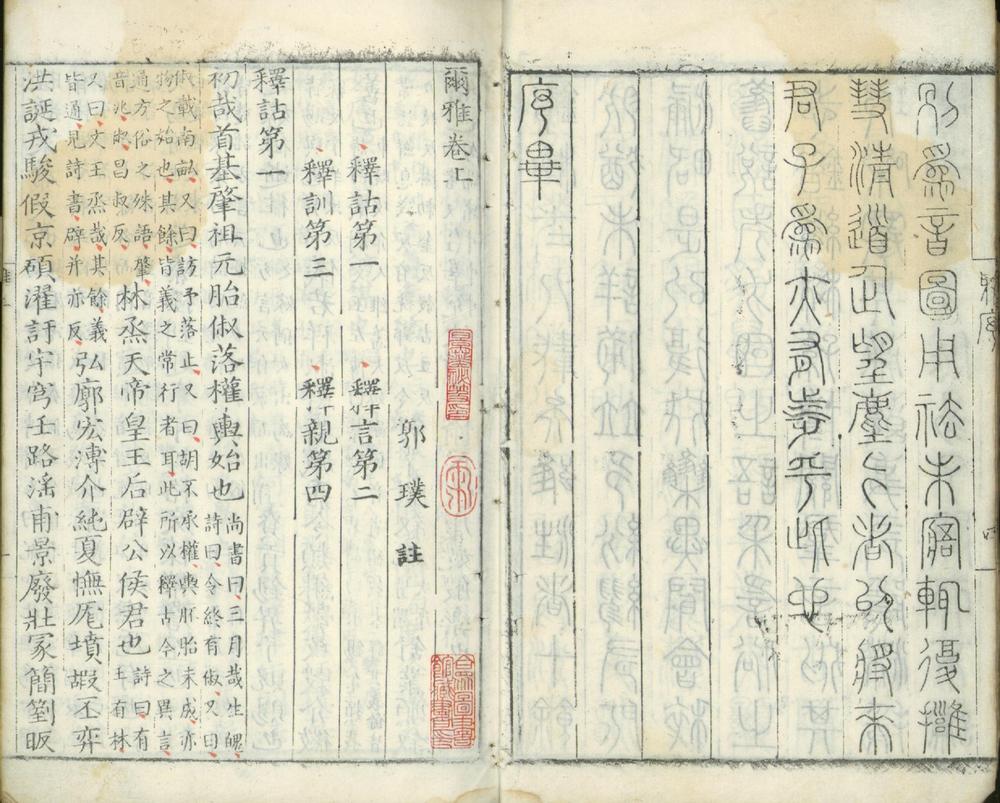 別爲音圖用祛未寤輒復擁
彗清道企望塵躅者以將來
君子爲亦有涉乎此也
序畢
爾雅卷上
郭璞註
釋詁第一 釋言第二
釋訓第三 釋親第四
釋詁第一
初哉首基肇祖元胎俶落權輿始也尚書曰三月哉生魄
詩曰令終有俶又曰
俶載南畝又曰訪予落止又曰胡不承權輿胚胎未成亦
物之始也其餘皆義之常行者耳此所以釋古今之異言
通方俗之殊語肇
音兆俶昌叔反
林烝天帝皇王后辟公侯君也詩曰有
壬有林
又曰文王烝哉其餘義
皆通見詩書辟并亦反
弘廓宏溥介純夏幠厖墳嘏丕弈
洪誕戎駿假京碩濯訏宇穹壬路淫甫景廢壯冢簡箌昄
合眾圖書館藏書印